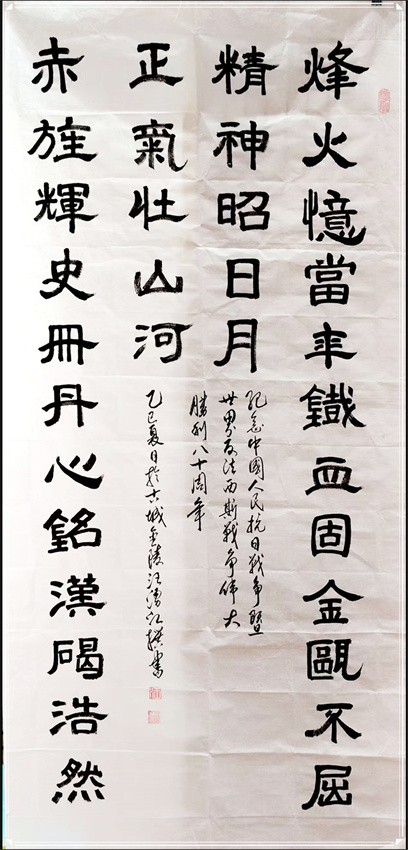 烽火憶當年鐵血固金甌不屈
精神昭日月
赤旌輝史冊丹心銘漢碣浩然
正氣壯山河
紀念中國人民抗日战争暨
世界反法西斯战争偉大
勝利八十周年
乙巳夏日於古城金陵汪江撰書